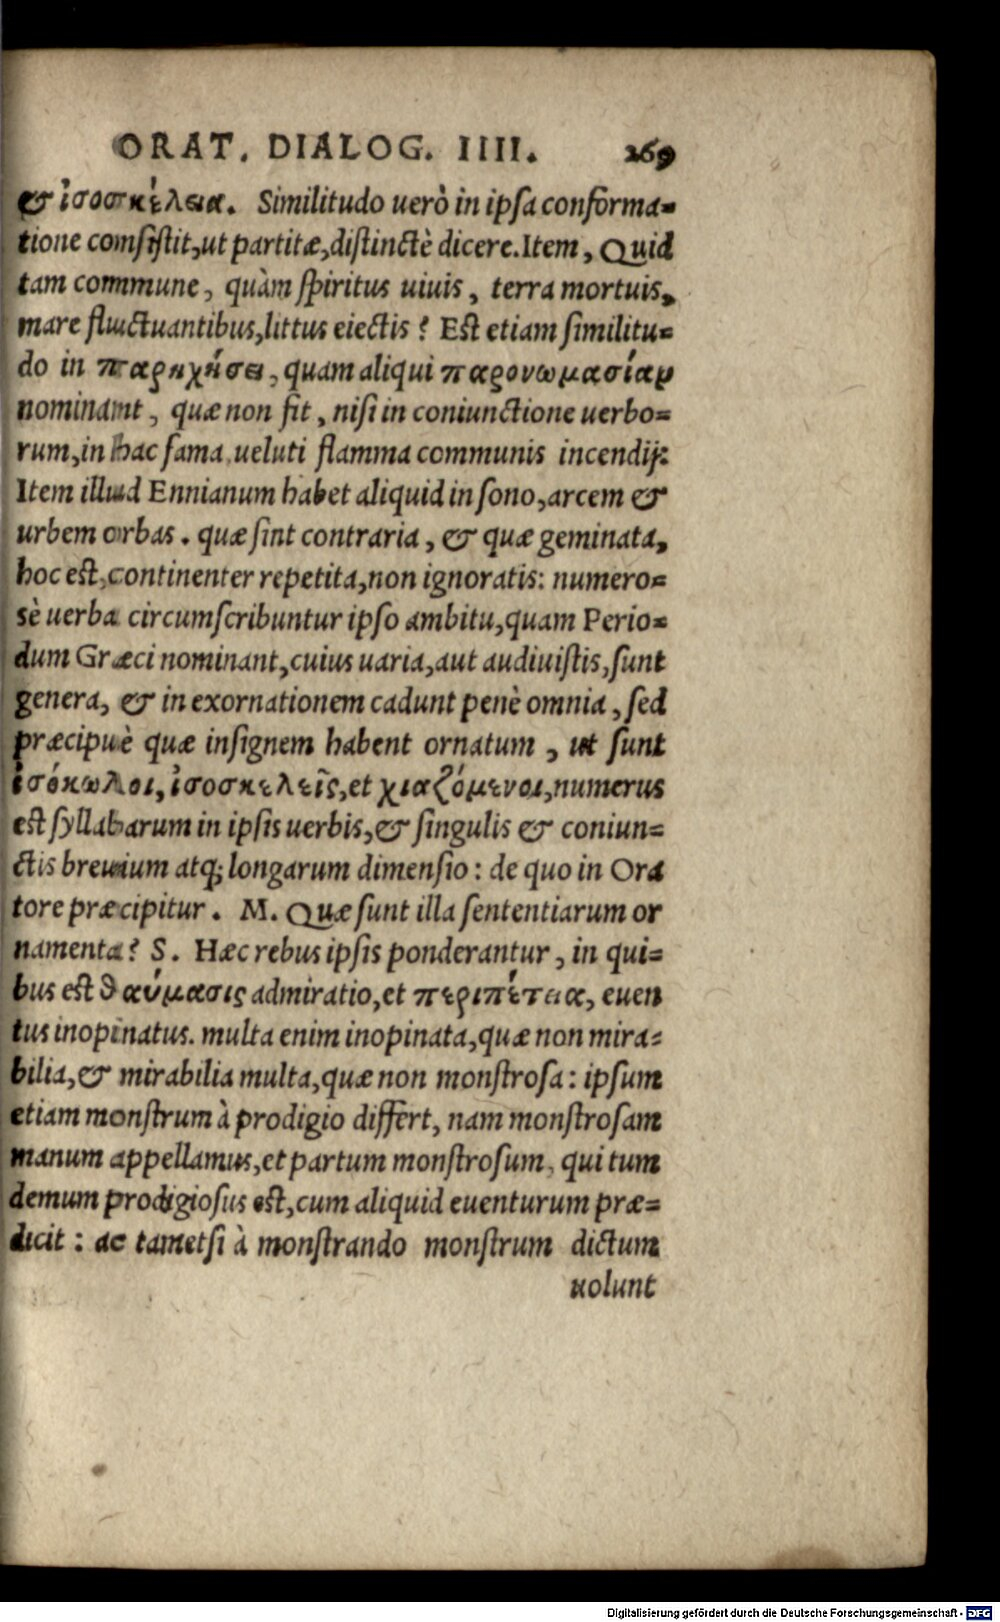 ORAT. DIALOG. IIII. 269
& ἰσοσκέλεια. Similitudo uerò in ipſa conforma-
tione comſiſtit, ut partitæ, diſtinctè dicere. Item, Quid
tam commune, quàm ſpiritus uiuis, terra mortuis,
mare fluctuantibus, littus eiectis? Eſt etiam ſimilitu-
do in παρηχήσει, quam aliqui παρονωμασίαν
nominant, quæ non fit, niſi in coniunctione uerbo-
rum, in hac fama ueluti flamma communis incendij:
Item illud Ennianum habet aliquid in ſono, arcem &
urbem orbas. quæ ſint contraria, & quæ geminata,
hoc eſt, continenter repetita, non ignoratis: numero-
sè uerba circumſcribuntur ipſo ambitu, quam Perio-
dum Græci nominant, cuius uaria, aut audiuiſtis, ſunt
genera, & in exornationem cadunt penè omnia, ſed
præcipuè quæ inſignem habent ornatum, ut ſunt
ἰσόκωλοι, ἰσοσκελεῖς, et χιαζόμενοι, numerus
eſt ſyllabarum in ipſis uerbis, & ſingulis & coniun-
ctis breuium atq; longarum dimenſio: de quo in Ora
tore præcipitur. M. Quæ ſunt illa ſententiarum or
namenta? S. Hæc rebus ipſis ponderantur, in qui-
bus eſt θαύμασις admiratio, et περιπέτεια, euen
tus inopinatus. multa enim inopinata, quæ non mira-
bilia, & mirabilia multa, quæ non monſtroſa: ipſum
etiam monſtrum à prodigio differt, nam monſtroſam
manum appellamus, et partum monſtroſum, qui tum
demum prodigioſus eſt, cum aliquid euenturum præ-
dicit: ac tametſi à monſtrando monſtrum dictum
uolunt
Digitalisierung gefördert durch die Deutsche Forschungsgemeinschaft - DFG